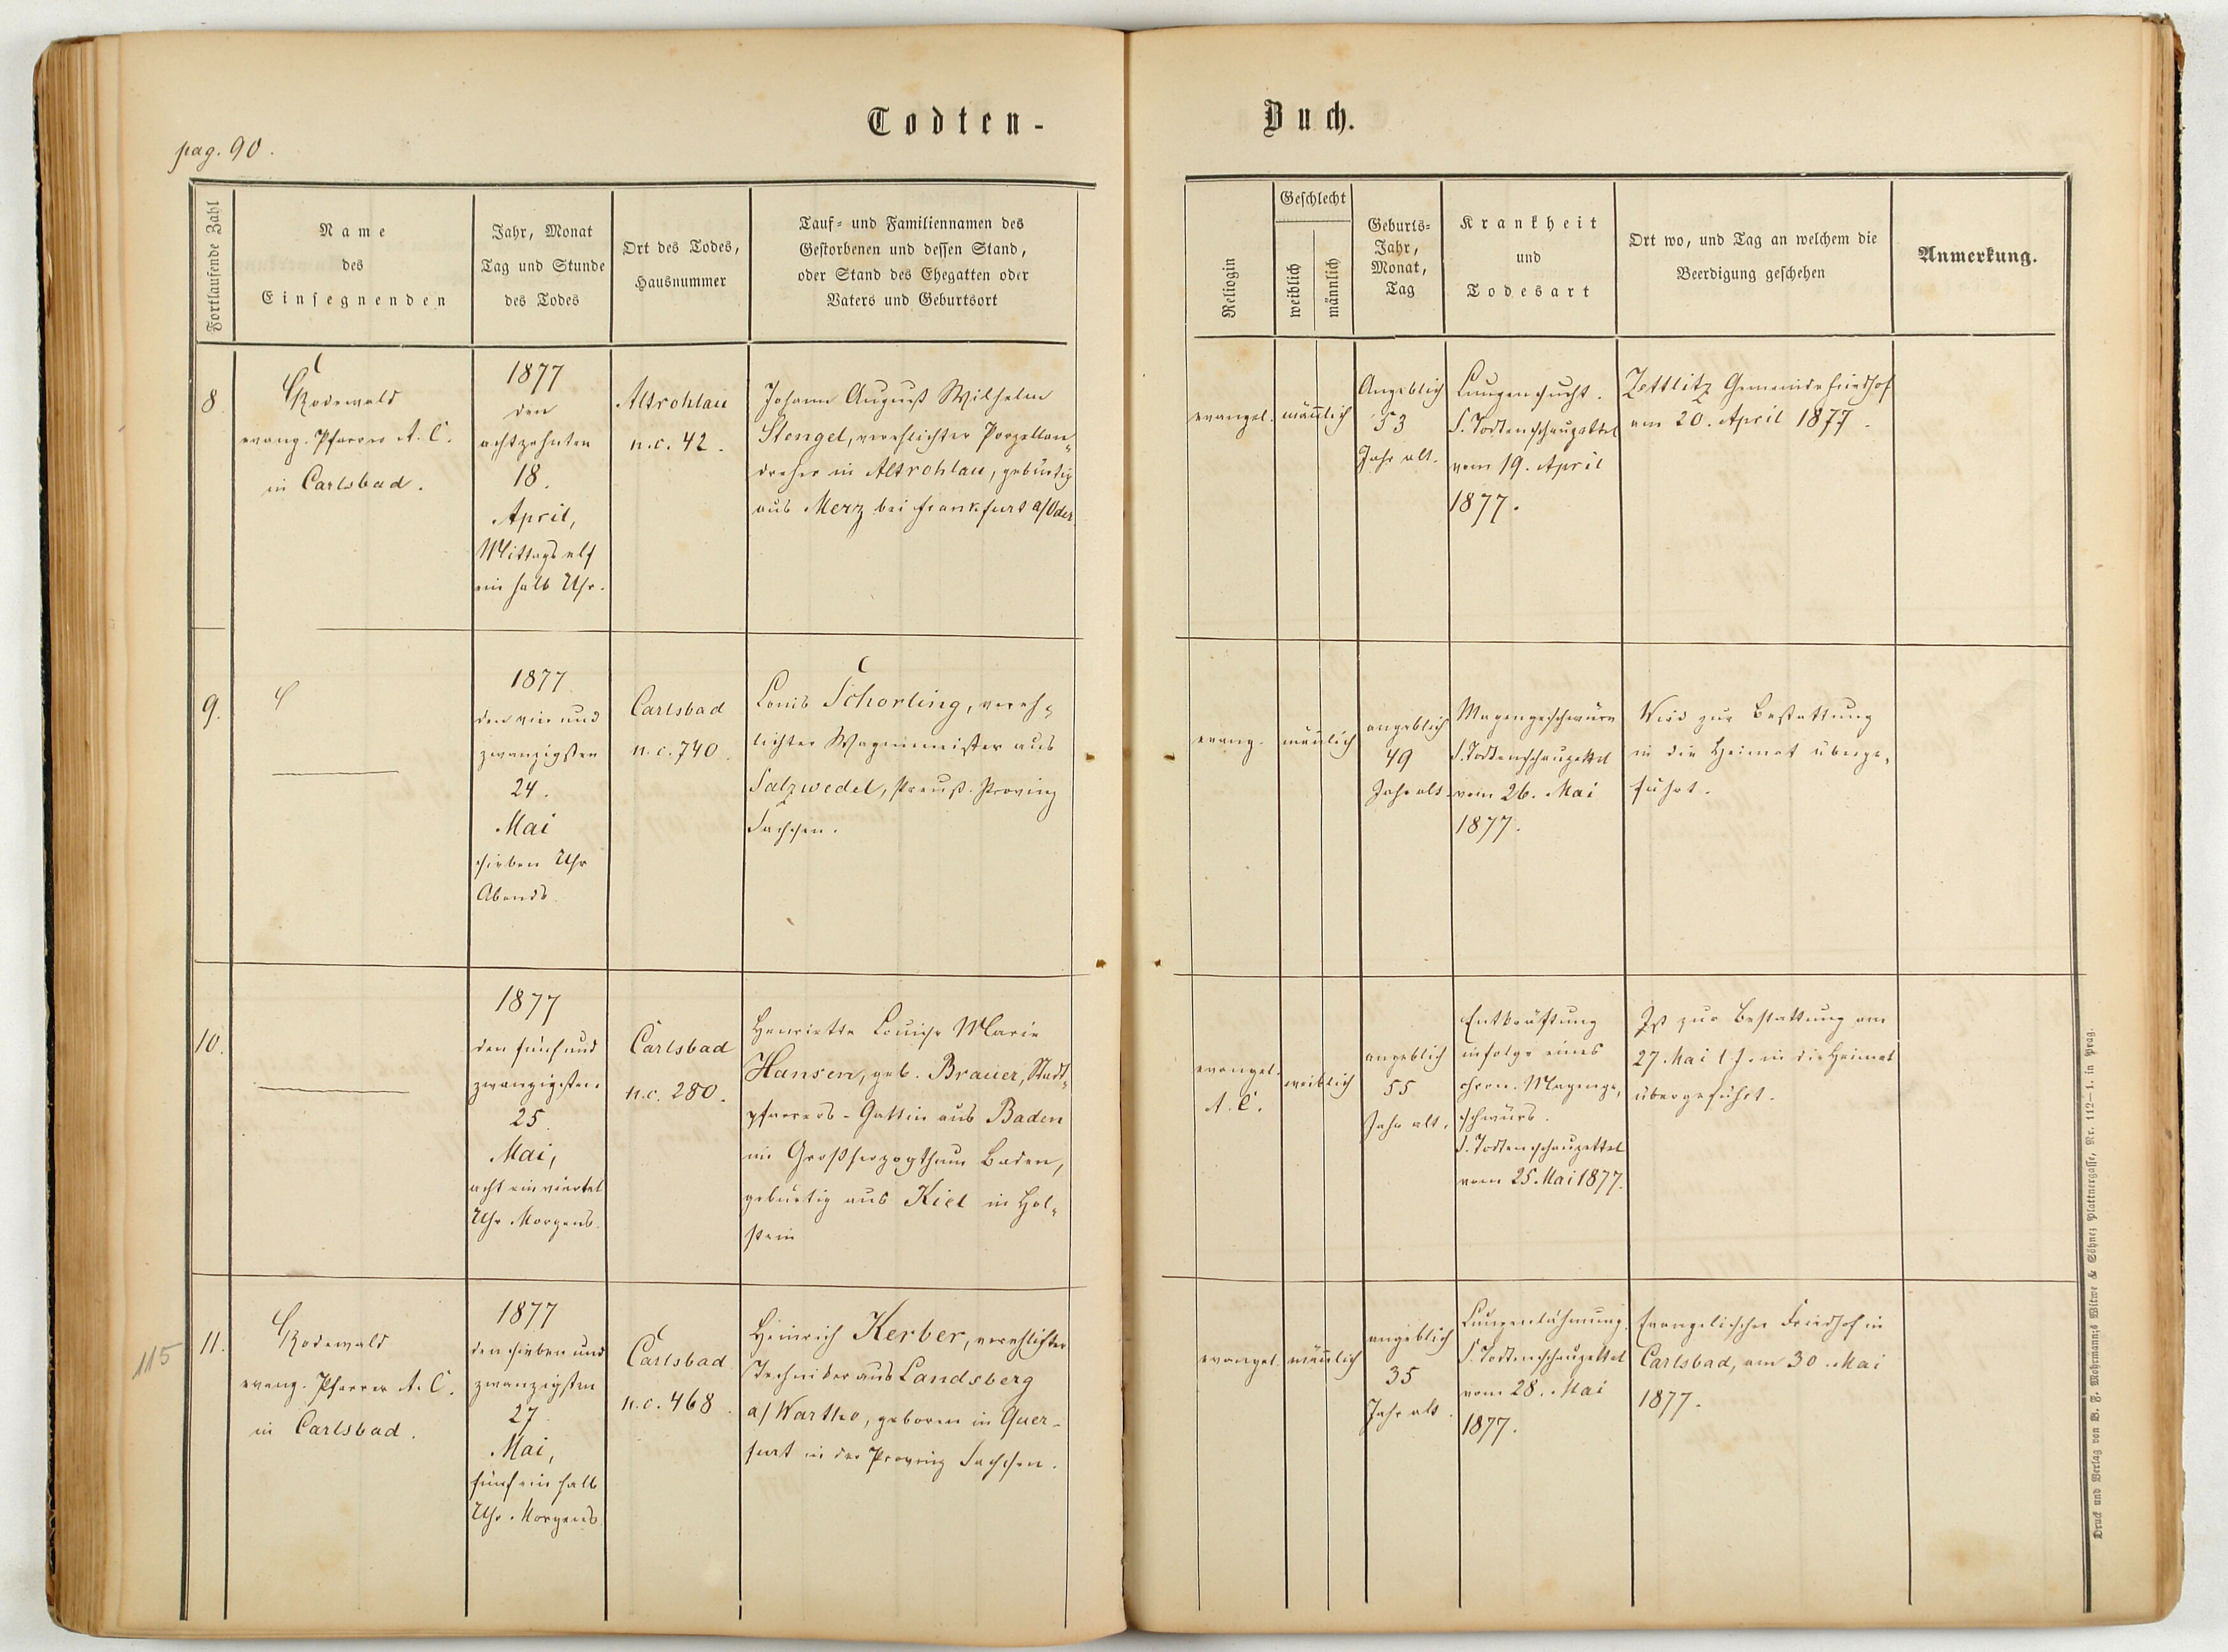 pag. 90.
Todten-
Buch.
Fortlaufende Zahl
Name
des
Einsegnenden
Jahr, Monat
Tag und Stunde
des Todes
Ort des Todes,
Hausnummer
Tauf- und Familiennamen des
Gestorbenen und dessen Stand,
oder Stand des Ehegatten oder
Vaters und Geburtsort
Religion
Geschlecht
weiblich
männlich
Geburts-
Jahr,
Monat,
Tag
Krankheit
und
Todesart
Ort wo, und Tag an welchem die
Beerdigung geschehen
Anmerkung.
8.
Rodewald
evang. Pfarrer A. C.
in Carlsbad.
1877
den
achtzehnten
18.
April,
Mittags elf
ein halb Uhr.
Altrohlau
n.c. 42.
Johann August Wilhelm
Stengel, verehlichter Porzellan-
dreher in Altrohlau, gebürtig
aus Merz bei Frankfurt a/Oder
evangel.
männlich
Angeblich
53
Jahr alt.
Lungensucht.
S. Todtenschauzettel
vom 19. April
1877.
Zettlitz Gemeindefriedhof
am 20. April 1877.
9.
1877
den vier und
zwanzigsten
24.
Mai
sieben Uhr
Abends
Carlsbad
n.c. 740.
Louis Schorling, vereh-
lichter Wagenmeister aus
Salzwedel, Preuß. Provinz
Sachsen.
evang.
männlich
angeblich
49
Jahr alt.
Magengeschwüre
S. Todtenschauzettel
vom 26. Mai
1877.
Wird zur Bestattung
in die Heimat überge-
führt.
10.
1877
den fünf und
zwanzigsten
25.
Mai,
acht ein viertel
Uhr Morgens.
Carlsbad
n.c. 280.
Henriette Louise Marie
Hansen, geb. Brauer, Stadt-
pfarrers-Gattin aus Baden
im Großherzogthum Baden,
gebürtig aus Kiel in Hol-
stein
evangel.
A. C.
weiblich
angeblich
55
Jahr alt.
Entkräftung
infolge eines
chron. Magenge-
schwürs.
S. Todtenschauzettel
vom 25. Mai 1877.
Ist zur Bestattung am
27. Mai l. J. in die Heimat
übergeführt.
115
11.
Rodewald
evang. Pfarrer A. C.
in Carlsbad.
1877
den sieben und
zwanzigsten
27.
Mai,
fünf ein halb
Uhr Morgens
Carlsbad
n.c. 468.
Heinrich Kerber, verehlichter
Techniker aus Landsberg
a/Warthe, geboren in Quer-
furt in der Provinz Sachsen.
evangel.
männlich
angeblich
35
Jahr alt.
Lungenlähmung.
S. Todtenschauzettel
vom 28. Mai
1877.
Evangelischer Friedhof in
Carlsbad, am 30. Mai
1877.
Druck und Verlag von B. F. Mohrmann's Witwe & Söhne; Plattnergasse, Nr. 112—1. in Prag.